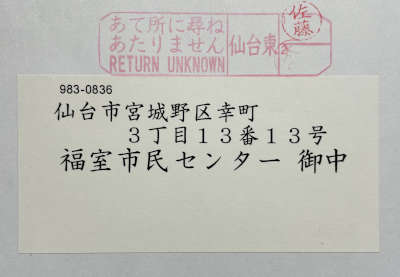 あて所に尋ね
あたりません
RETURN UNKNOWN
仙台東
佐藤
983-0836
仙台市宮城野区幸町
3丁目13番13号
福室市民センター 御中